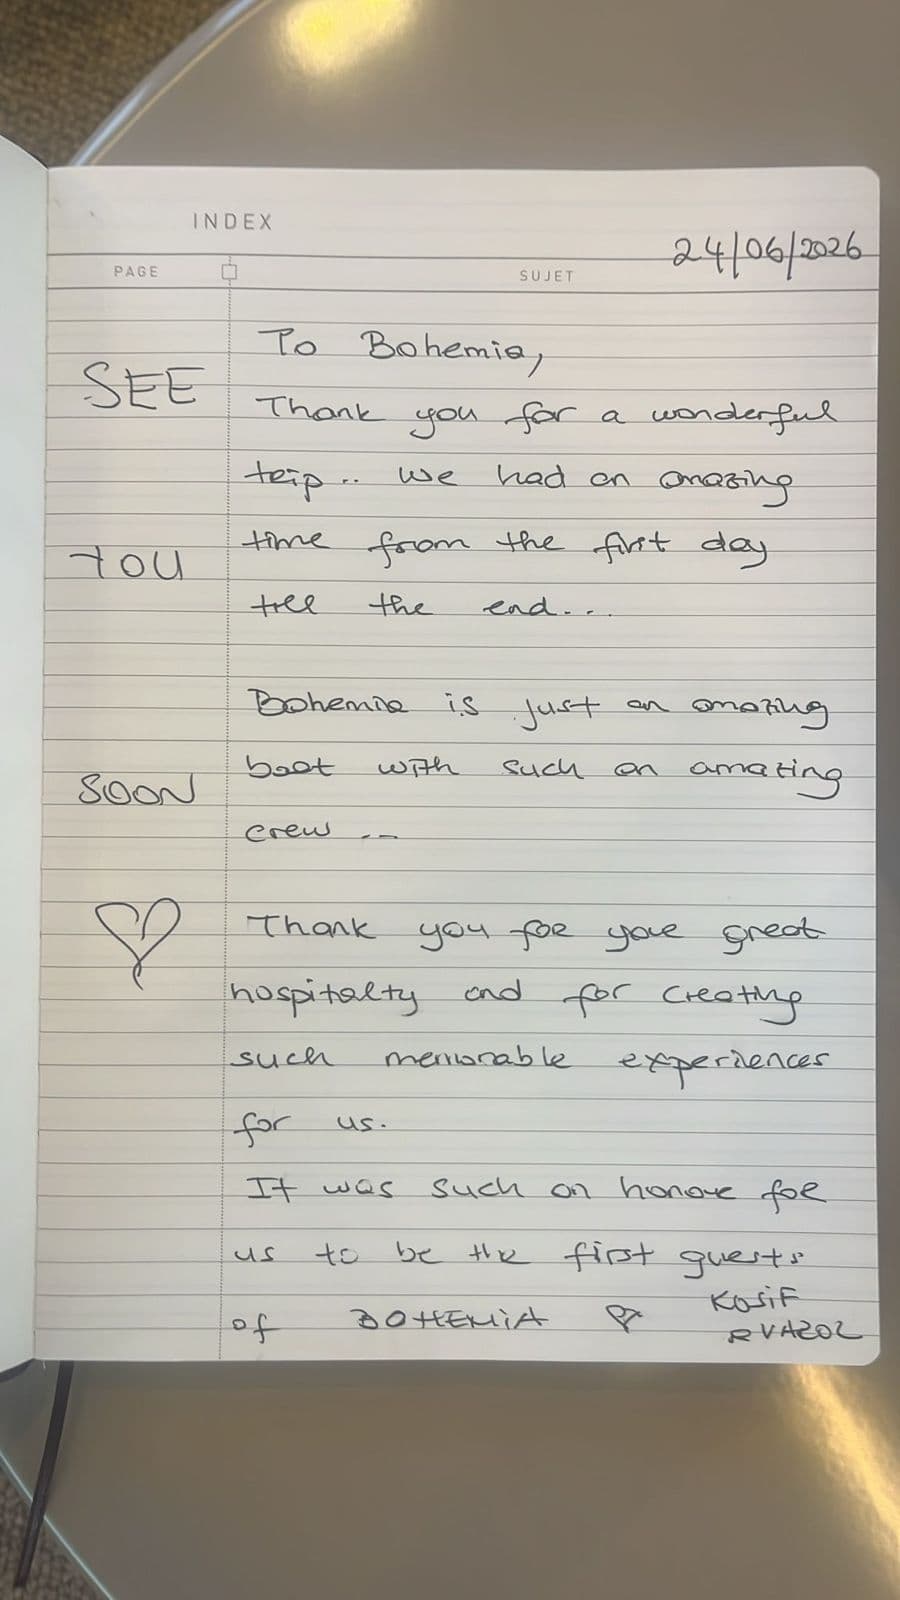 INDEX
24/06/2026
PAGE
SUJET
To Bohemia,
SEE
Thank you for a wonderful
trip.. we had an amazing
time from the first day
YOU
till the end...
Bohemia is just an amazing
boat with such an amazing
SOON
crew ..
Thank you for your great
hospitalty and for creating
such memorable experiences
for us.
It was such an honour for
us to be the first guests
of BOHEMIA